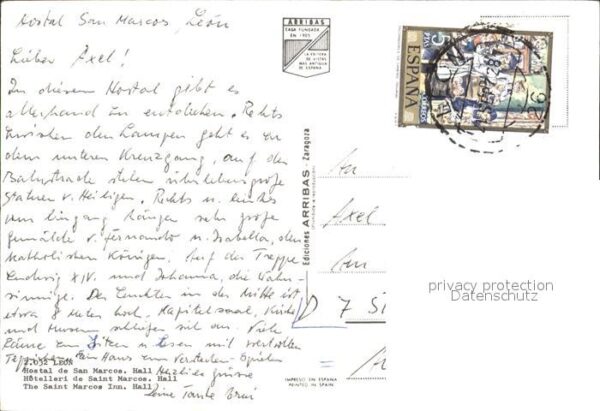 Hostal San Marcos, León
Lieber Axel!
In diesem Hostal gibt es
allerhand zu entdecken. Rechts
zwischen den Lampen geht es zu
dem unteren Kreuzgang, auf der
Balustrade stehen überlebensgroße
Statuen v. Heiligen. Rechts u. links
vom Eingang hängen sehr große
Gemälde v. Fernando u. Isabella, den
Katholischen Königen. Auf der Treppe
Ludwig XIV. und Johanna, die Wahn-
sinnige. Der Leuchter in der Mitte ist
etwa 8 Meter hoch. Kapitelsaal, Kirche
und Museum schließen sich an. Viele
Räume zum Sitzen u. Lesen mit wertvollen
Teppichen. Ein Haus zum Verstecken-Spielen
Herzliche Grüsse
Deine Tante
2.032 LEON
Hostal de San Marcos. Hall
Hôtelleri de Saint Marcos. Hall
The Saint Marcos Inn. Hall
ARRIBAS
CASA FUNDADA
EN 1905
LA EDITORA
DE VISTAS
MAS ANTIGUA
DE ESPAÑA
Ediciones ARRIBAS - Zaragoza
IMPRESO EN ESPAÑA
PRINTED IN SPAIN
5
PTAS
ESPAÑA
CORREOS
An
Axel
Am
D 7 St
privacy protection
Datenschutz